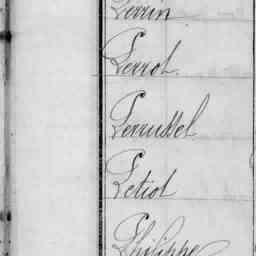 Perrin
Perrot.
Perrussel
Petiot
Philippe